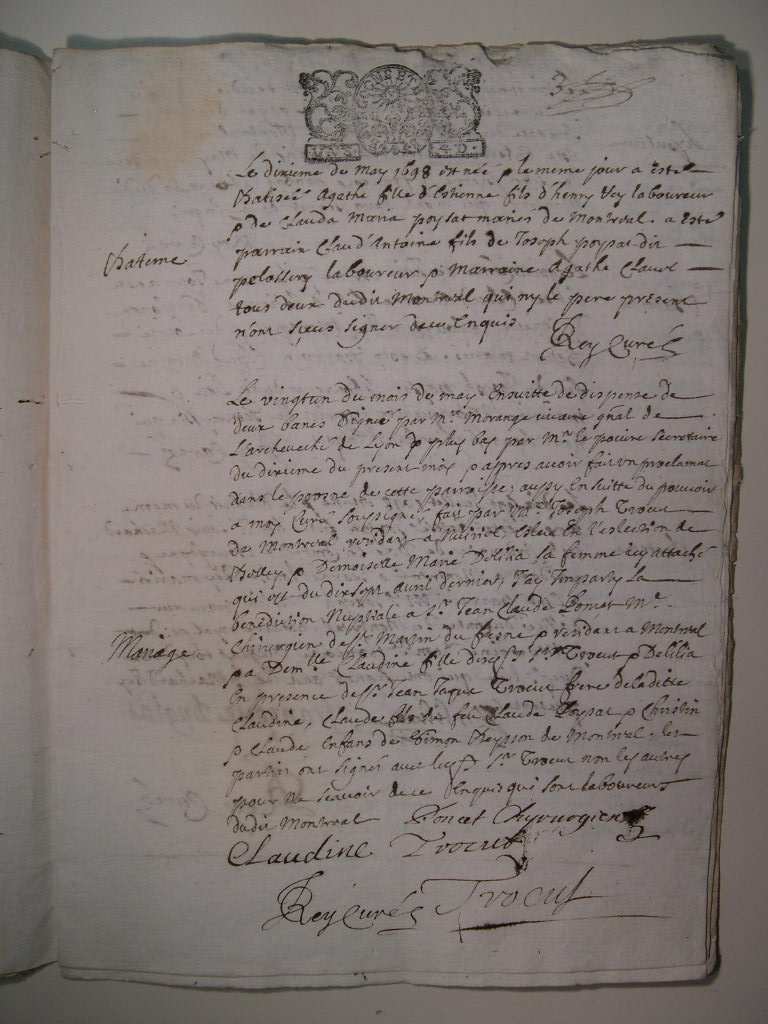 Le dixieme de May 1698 est née p le meme jour a este
Batisée Agathe fille d'Estienne fils d'henry Vey laboureur
p de Clauda Maria poysat maries de Montreal. a este
Bateme
parrain Claud'Antoine fils de Joseph poysat dit
laboureur p Marraine Agathe
tous deux dudit Montreal qui ny le pere present
n'ont sceus signer de ce Enquis
Rey Curé
Le vingtun du mois de may Ensuitte de dispense de
deux bans signée par Mr. Morange vicaire gñal de
L'archeveché de Lyon p plus bas par Mr. le poivre secretaire
du dixieme du present mois p apres avoir fait un proclamat
dans le prosne de cette parroisse: aussy Ensuitte du pouvoir
a moy Curé soussigné fait par Mr. Joseph Trocu
de Montreal residant a Election de
Belley p Demoiselle Marie Delilia sa femme icy attaché
qui est du dixsept avril dernier, J'ay Imparty la
benediction Nuptiale a Sr. Jean Claude Poncet Mr.
Mariage
Chirurgien de St. Martin du fresne p residant a Montreal
p a Demlle Claudine fille Trocu p Delilia
En presence de Sr. Jean Jaque Trocu frere de laditte
Claudine, Claude fils de feu Claude Poysat p Christin
p Claude Enfans de Simon de Montreal. les
parties ont signés avec Sr. Trocu non les autres
pour ne scavoir de ce Enquis qui sont laboureurs
dudit Montreal Poncet Chyrurgien
Claudine Trocu
Rey Curé Trocu